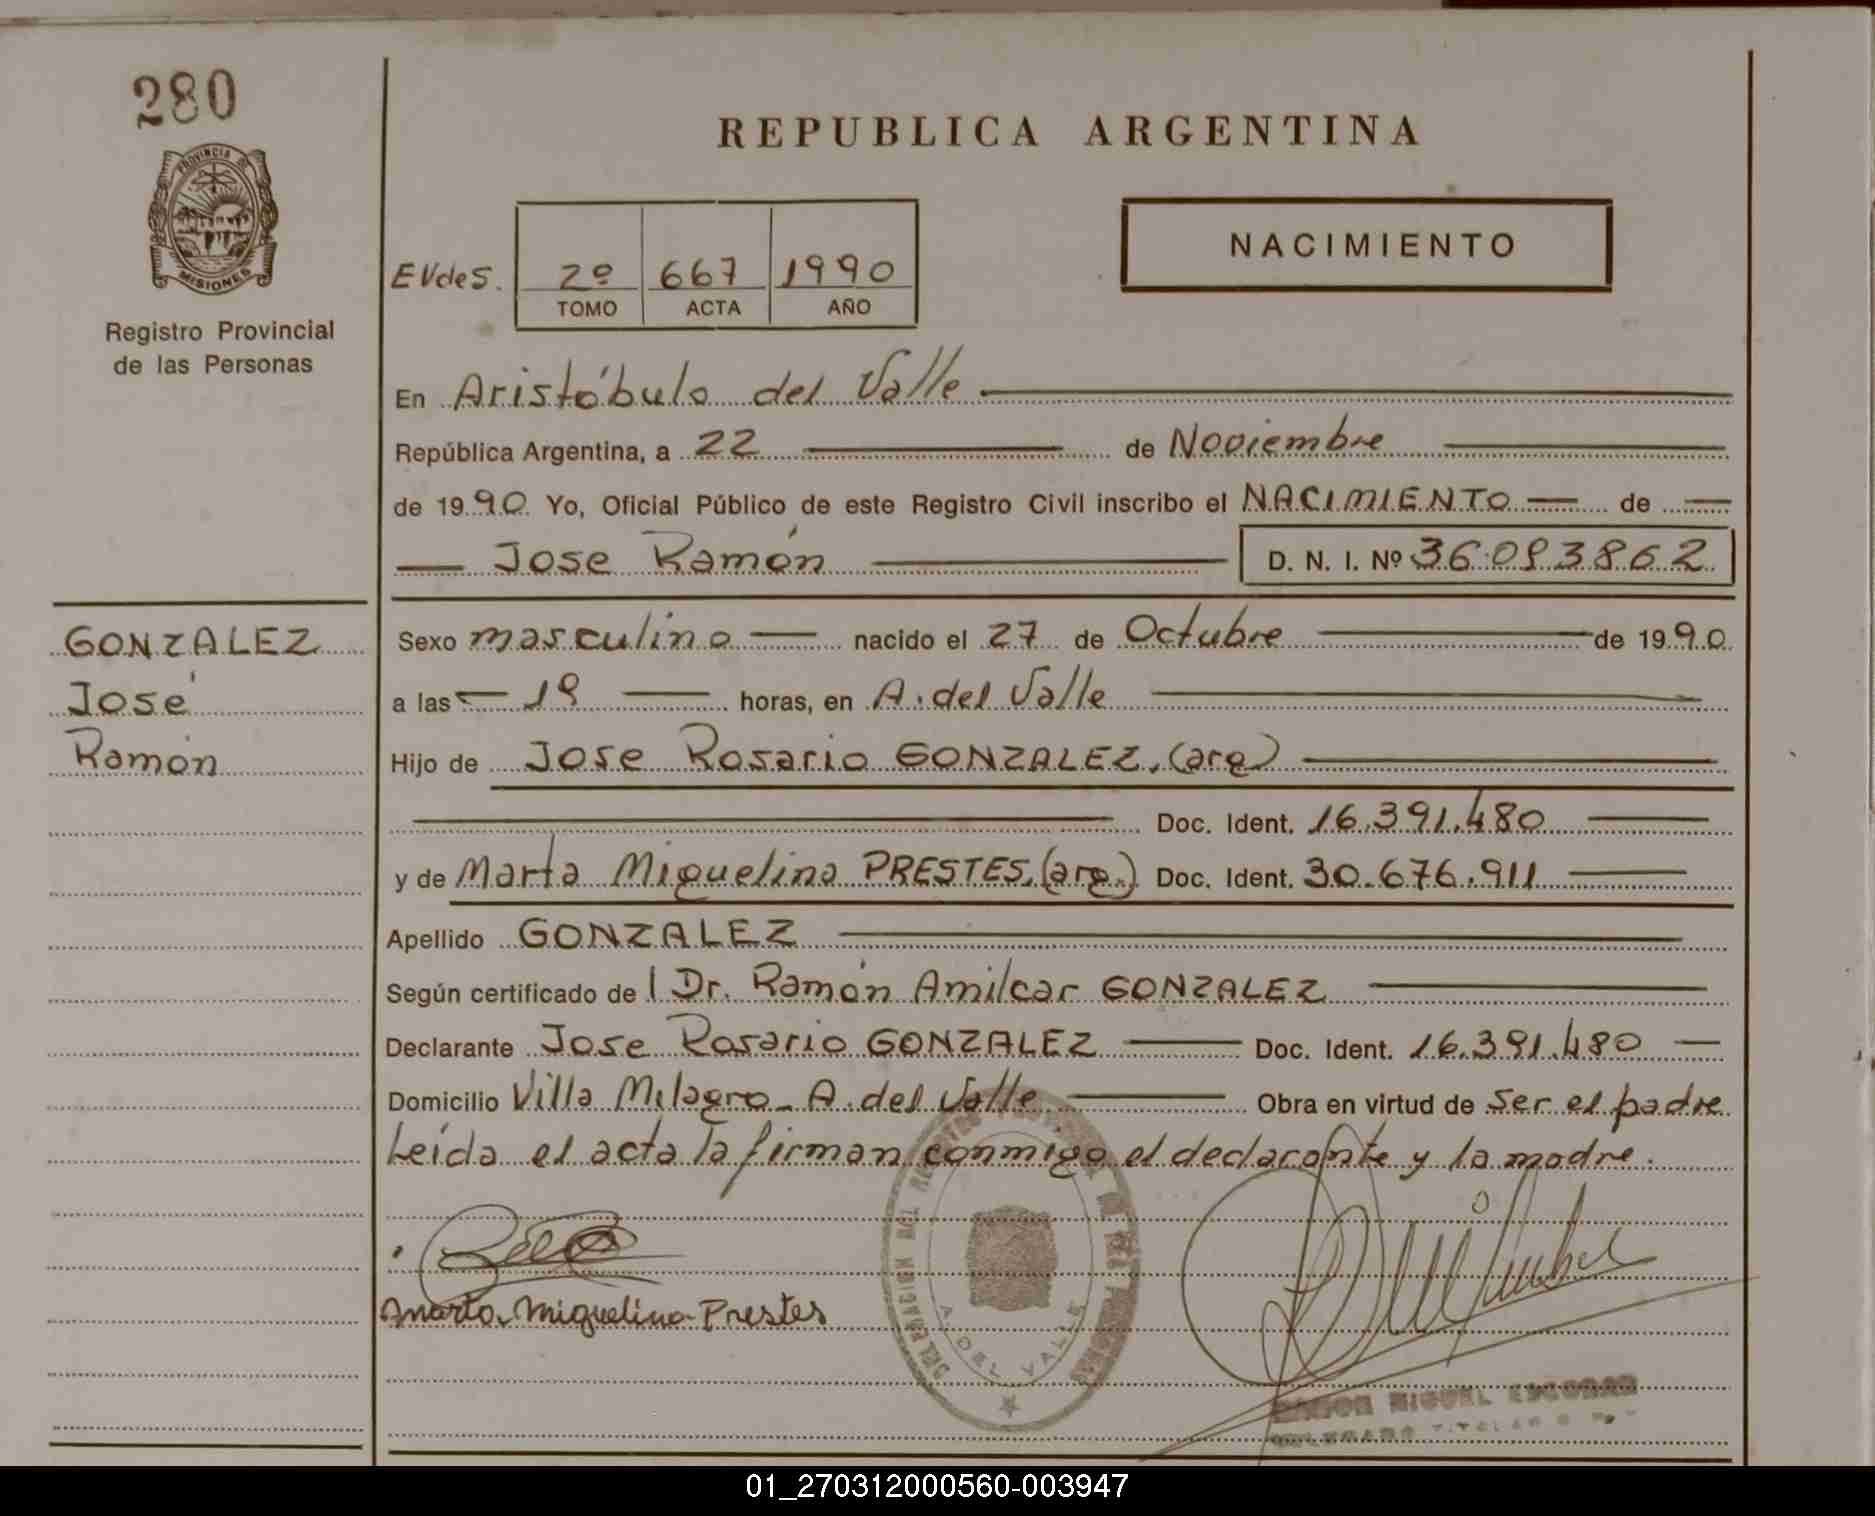 280
PROVINCIA DE
MISIONES
Registro Provincial
de las Personas
REPUBLICA ARGENTINA
EVdeS. 2º 667 1990
TOMO ACTA AÑO
NACIMIENTO
En Aristóbulo del Valle
República Argentina, a 22 de Noviembre
de 1990 Yo, Oficial Público de este Registro Civil inscribo el NACIMIENTO de
Jose Ramón D. N. I. Nº 36.093862
GONZALEZ
José
Ramón
Sexo masculino nacido el 27 de Octubre de 1990
a las 19 horas, en A. del Valle
Hijo de Jose Rosario GONZALEZ, (arg)
Doc. Ident. 16.391.480
y de Marta Miguelina PRESTES, (arg.) Doc. Ident. 30.676.911
Apellido GONZALEZ
Según certificado de l Dr. Ramón Amilcar GONZALEZ
Declarante Jose Rosario GONZALEZ Doc. Ident. 16.391.480
Domicilio Villa Milagro - A. del Valle Obra en virtud de ser el padre
Leída el acta la firman conmigo el declarante y la madre.
Marta Miguelina Prestes
A. DEL VALLE
RAMON MIGUEL ESCOBAR
01_270312000560-003947